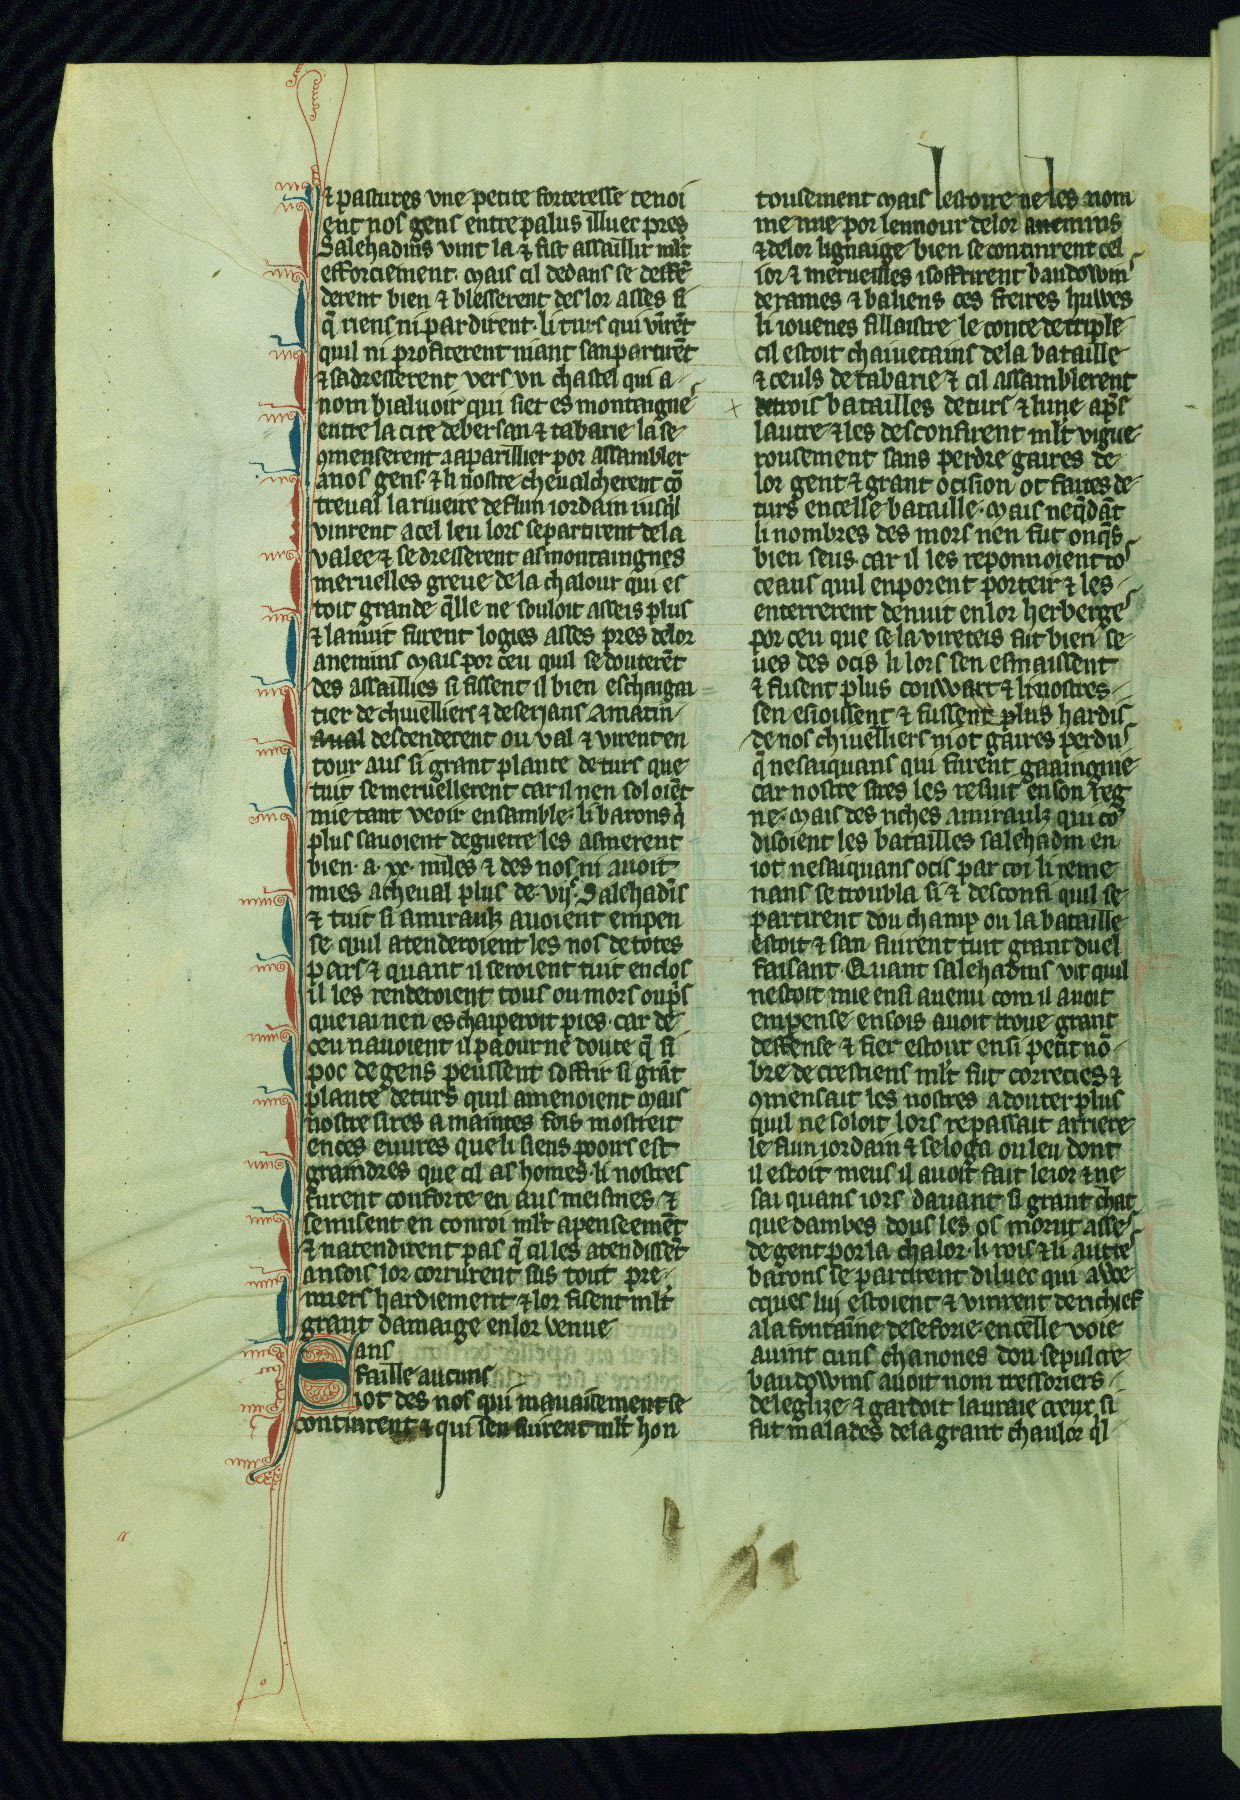 ⁊ pastures vne petite forteresse tenoi
ent nos gens entre palus illuec pres
Salehadins vint la ⁊ fist assaillir mlt
efforciement. mais cil dedans se deffē
derent bien ⁊ blesserent des lor asses si
q̄ riens ni pardirent. li turs qui virēt
quil ni profiterent niant san partirēt
⁊ sadresserent vers vn chastel qui a
nom bialuoir qui siet es montaigne
entre la cite de bersan ⁊ tabarie la se
ꝯmenserent a aparillier por assambler
a nos gens. ⁊ li nostre cheualcherent cō
treual la riueire de flun iordain iusq̄l
vinrent a cel leu lors se partirent de la
valee ⁊ se dresserent as montaingnes
meruelles greue de la chalour qui es
toit grande q̄lle ne souloit asseis plus
⁊ la nuit furent logies asses pres de lor
anemins mais por ceu quil se douterēt
des assaillies si fissent il bien eschaigai
tier de chiuelliers ⁊ de serians A matin
aual descenderent ou val ⁊ virent en
tour aus si grant plante de turs que
tuit se meruellerent car il nen soloiēt
mie tant veoir ensamble. li barons q̄
plus sauoient de guerre les asmerent
bien. a. xx. miles ⁊ des nos ni auoit
mies a cheual plus de. vijc. Salehadīs
⁊ tuit si amiraulz auoient empen
se quil atenderoient les nos de totes
pars ⁊ quant il seroient tuit enclos
il les renderoient tous ou mors ou p̄s
que iai nen eschaiperoit pies. car de
ceu nauoient il paour ne doute q̄ si
poc de gens peussent soffrir si grāt
plante de turs quil amenoient mais
nostre sires a maintes fois mostreit
en ces euures que li siens pooirs est
graindres que cil as homes. li nostres
furent conforte en aus meismes ⁊
se misent en conroi mlt apenseemēt
⁊ natendirent pas q̄ cil les atendissēt
ansois lor corrurent sus tout pre
miers hardiement ⁊ lor fisent mlt
grant damaige en lor venue
Sans
faille aucuns
iot des nos qui mauaisement se
contindrent ⁊ qui sen fuirent mlt hon
tousement mais lestoire ne les nom
me mie por lennour de lor anemins
⁊ de lor lignaige bien se continrent cel
ior ⁊ merueilles i soffrirent baudowin
de rames ⁊ baliens ces freires huwes
li iouenes fillaistre le conte de triple
cil estoit chaiuetains de la bataille
⁊ ceuls de tabarie ⁊ cil assamblerent
trois batailles de turs ⁊ lune ap̄s
lautre ⁊ les desconfirent mlt vigue
rousement sans perdre gaires de
lor gent ⁊ grant ocision ot faites de
turs en celle bataille. mais neq̄dāt
li nombres des mors nen fut onq̄s
bien seus. car il les reponnoient to
ceaus quil en porent porteir ⁊ les
enterrerent de nuit en lor herberge
por ceu que se la vireteis fut bien se
ues des ocis li lors sen esmaissent
⁊ fusent plus couwart ⁊ li nostres
sen esioissent ⁊ fussent plus hardis
de nos chiuelliers ni ot gaires perdu
q̄ ne sai quans qui furent gaaingnie
car nostre sires les resiut en son reg
ne. mais des riches amiraulz qui cō
disoient les batailles salehadin en
iot ne sai quans ocis par coi li reme
nans se troubla si ⁊ desconfi quil se
partirent dou champ ou la bataille
estoit ⁊ san fuirent tuit grant duel
faisant. Quant salehadins vit quil
nestoit mie ensi auenu com il auoit
empense ensois auoit troue grant
deffense ⁊ fier estour en si petit nō
bre de crestiens mlt fut correcies ⁊
ꝯmensait les nostres a douter plus
quil ne soloit lors repassait arriere
le flun iordain ⁊ se loga ou leu dont
il estoit meus il auoit fait le ior ⁊ ne
sai quans iors dauant si grant chat
que dambes dous les os morut asse
de gent por la chalor. li rois ⁊ li autre
barons se partirent diluec qui awe
cques luj estoient ⁊ vinrent derichief
a la fontaine de seforie. en celle voie
auint cuns chanones dou sepulcre
baudowins auoit nom tressoriers
de leglize ⁊ gardoit la uraie creux. si
fut malades de la grant chaulor q̄l